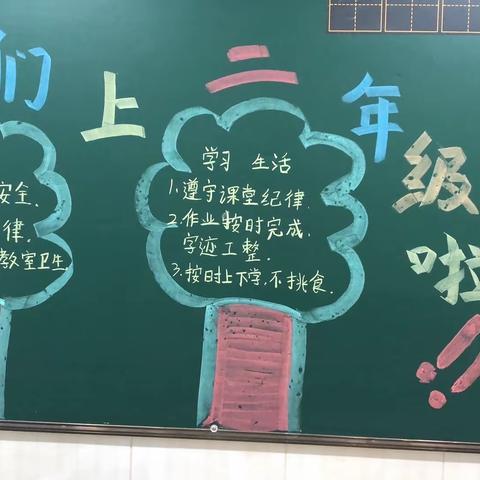 们上二年级啦!!
安全.
律.
教室卫生.
学习 生活
1.遵守课堂纪律.
2.作业按时完成,
字迹工整.
3.按时上下学,不挑食.